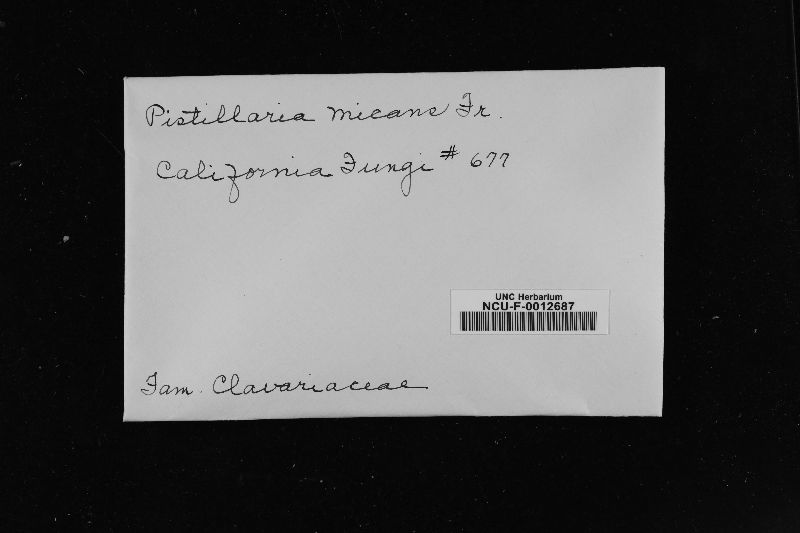 Pistillaria micans Fr.
California Fungi # 677
UNC Herbarium
NCU-F-0012687
Fam. Clavariaceae